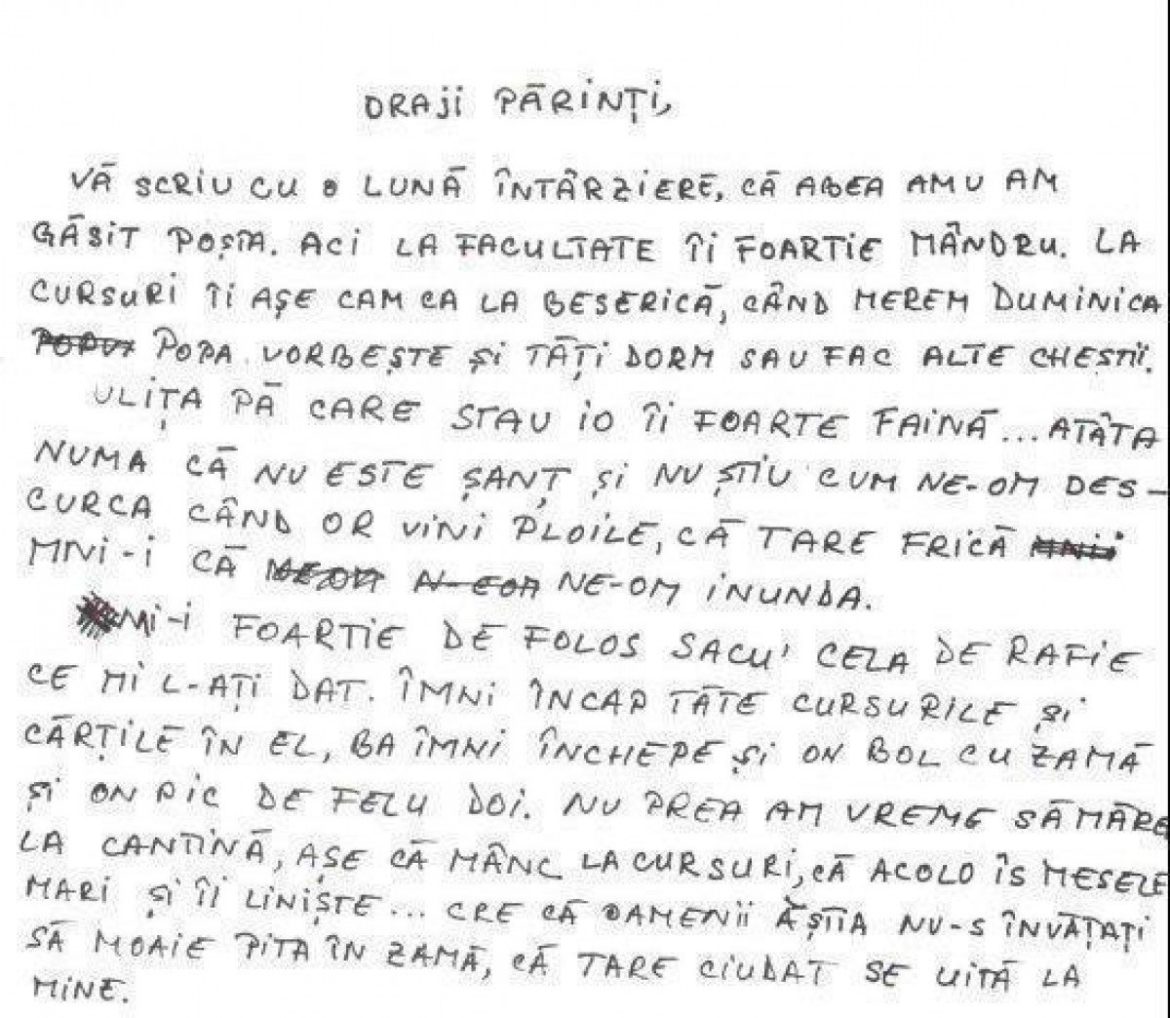 DRAJI PĂRINȚI,
VĂ SCRIU CU O LUNĂ ÎNTÂRZIERE, CĂ ABEA AMU AM
GĂSIT POȘTA. ACI LA FACULTATE ÎI FOARTIE MÂNDRU. LA
CURSURI ÎI AȘE CAM CA LA BESERICĂ, CÂND MEREM DUMINICA
POPA VORBEȘTE ȘI TĂȚI DORM SAU FAC ALTE CHESTII.
ULIȚA PĂ CARE STAU IO ÎI FOARTE FAINĂ... ATÂTA
NUMA CĂ NU ESTE ȘANȚ ȘI NU ȘTIU CUM NE-OM DES-
CURCA CÂND OR VINI PLOILE, CĂ TARE FRICĂ
MNI-I CĂ NE-OM INUNDA.
MI-I FOARTIE DE FOLOS SACU' CELA DE RAFIE
CE MI L-AȚI DAT. ÎMNI ÎNCAP TĂTE CURSURILE ȘI
CĂRȚILE ÎN EL, BA ÎMNI ÎNCHEPE ȘI ON BOL CU ZAMĂ
ȘI ON PIC DE FELU DOI. NU PREA AM VREME SĂ MĂRE
LA CANTINĂ, AȘE CĂ MÂNC LA CURSURI, CĂ ACOLO ÎS MESELE
MARI ȘI ÎI LINIȘTE... CRE CĂ OAMENII ĂȘTIA NU-S ÎNVĂȚAȚI
SĂ MOAIE PITA ÎN ZAMĂ, CĂ TARE CIUDAT SE UITĂ LA
MINE.